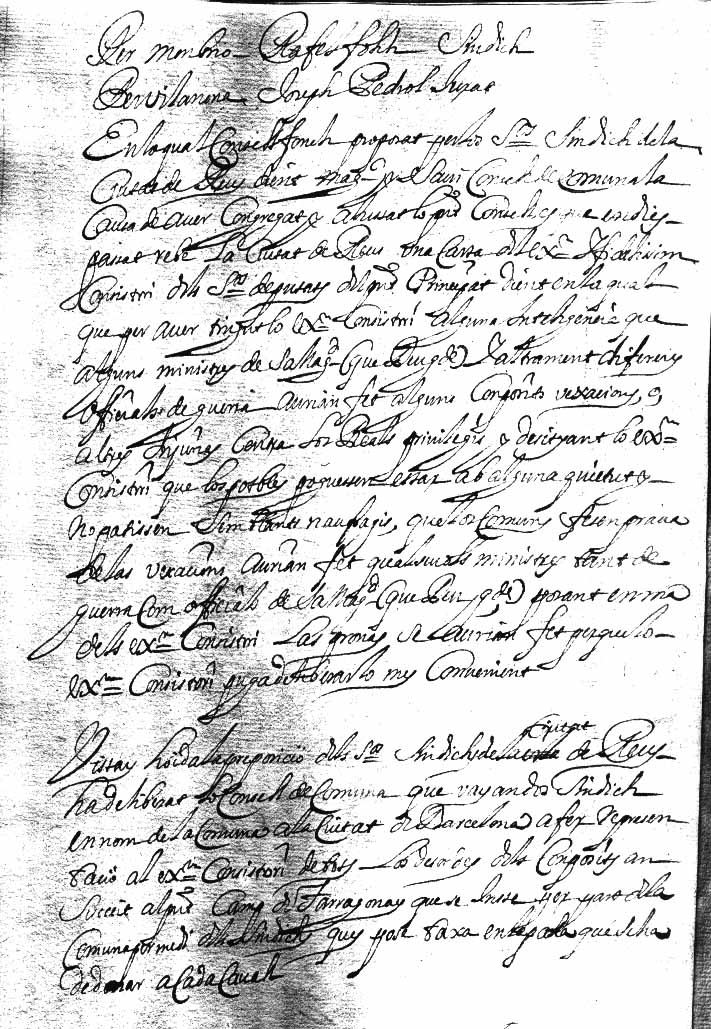 Per Monbrio Rafel folch Sindich
Per Vilanova Joseph Pedrol Jurat
En lo qual Consell fonch proposat per lo Sr Sindich de la
Ciutat de Reus dient Magch y Savi Consell de Comuna la
Causa de aver Congregat y ajustat lo pnt Consell es que en dies
passat rebe la Ciutat de Reus una Carta del Exm Fidelissim
Consistori dels Srs deputats del pnt Principat dient en la qual
que per aver tingut lo Exm Consistori alguna Inteligencia que
alguns ministres de Sa Magd (que Deu gde) y altrament diferens
Officials de guerra aurian fet alguns vexacions,
altres Injuries Contra los Reals privilegis y desitjant lo Exm
Consistori que los pobles poguessen estar ab alguna quietut y
no patissen Semblants naufragis, que los Comuns fesen prova
de las vexacions aurian fet qualsevols ministres tant de
guerra Com officials de Sa Magd (que Deu gde) posant en ma
dels Exm Consistori las provas se aurian fet perque lo
Exm Consistori puga deliberar lo mes Convenient
Vista y hoida la proposicio dels Srs Sindichs de la Ciutat de Reus
ha deliberat lo Consell de Comuna que vayan dos Sindich
en nom de la Comuna a la Ciutat de Barcelona a fer represen
tacio al Exm Consistori de tots los desordes dels an
succeit al pnt Camp de Tarragona y que se Inste per part de la
Comuna per medi dels Sindichs ques pose taxa en la palla que se ha
de donar a Cada Cavall